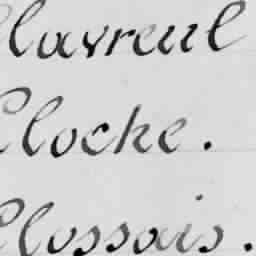 Clavreul
Cloche.
Clossais.